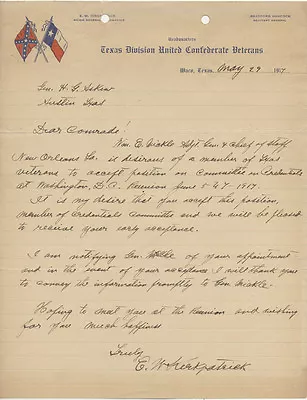 Headquarters
Texas Division United Confederate Veterans
Waco, Texas, May 29 1917
Gen. H. G. Askew
Austin Texas
Dear Comrade:
Wm. E. Mickle Adjt Gen. & Chief of Staff
New Orleans La. is desirous of a member of Texas
veterans to accept position on Committee on Credentials
at Washington, D.C. Reunion June 5 4 7 - 1917.
It is my desire that you accept this position,
member of Credentials Committee and we will be pleased
to receive your early acceptance.
I am notifying Gen Mickle of your appointment
and in the event of your acceptance I will thank you
to convey the information promptly to Gen. Mickle.
Hoping to meet you at the Reunion and wishing
for you much happiness
Truly,
E. W. Kirkpatrick